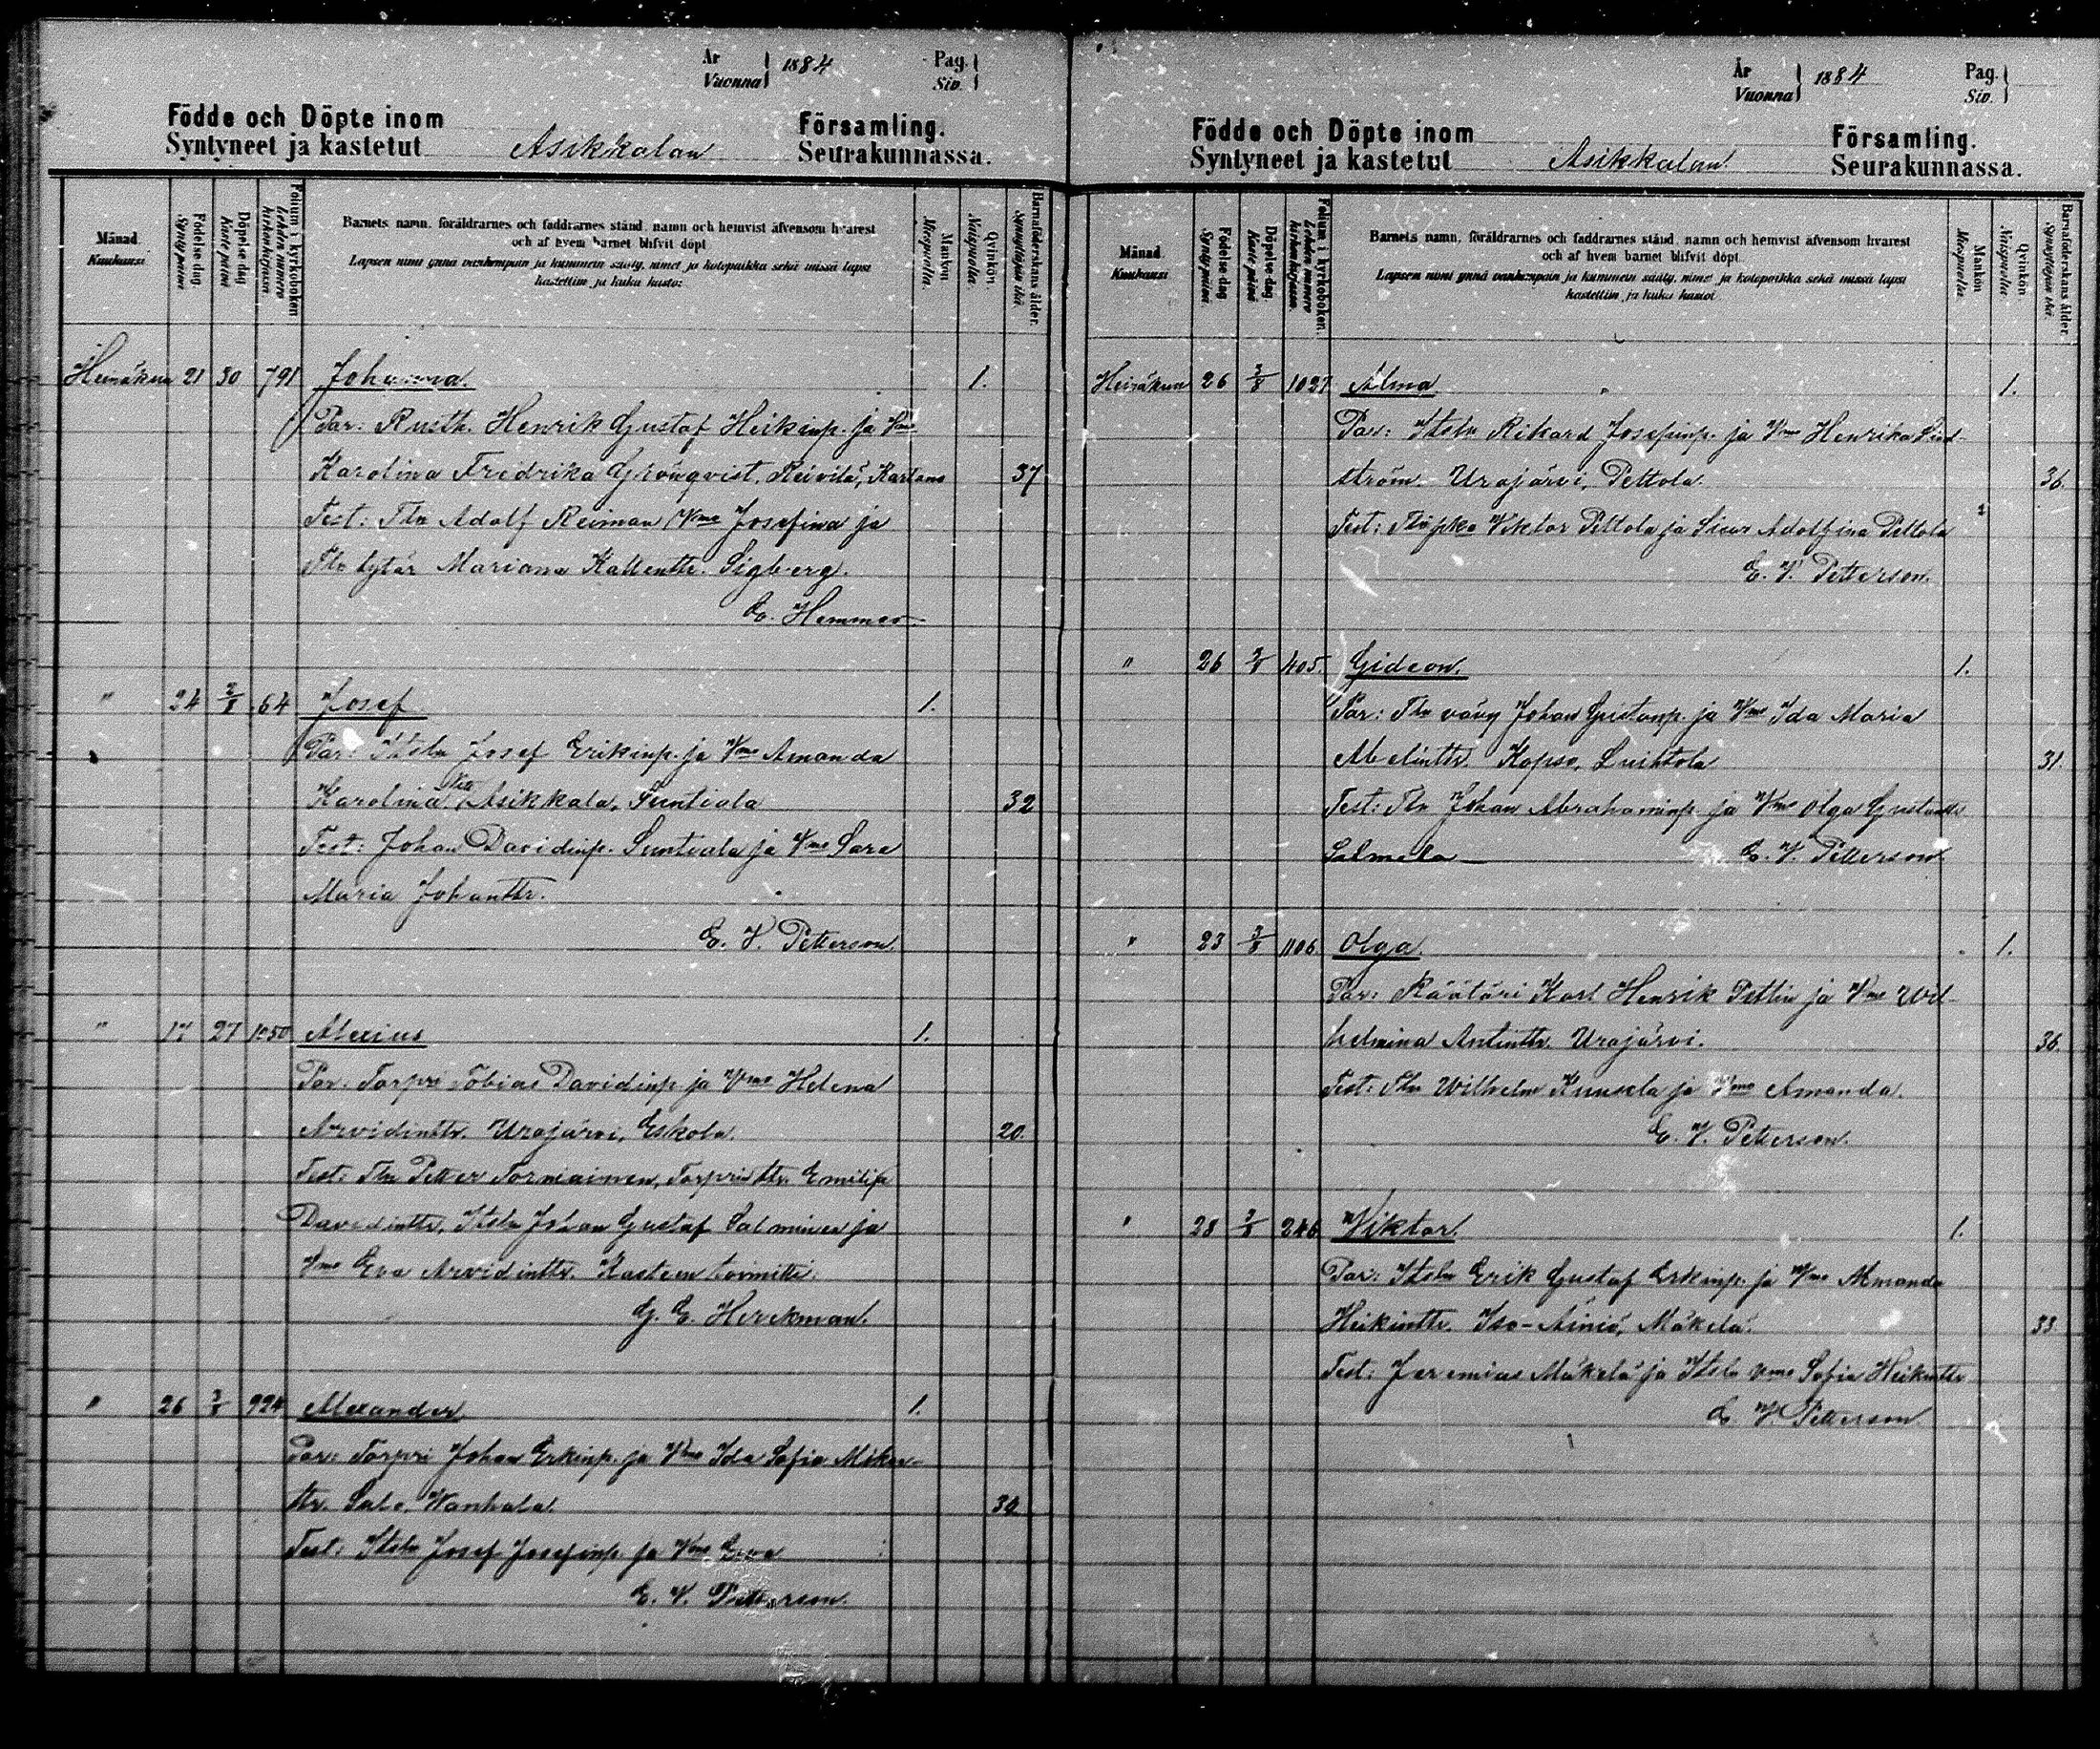 År
Vuonna } 1884
Pag.
Siv. }
Födde och Döpte inom
Syntyneet ja kastetut Asikkalan
Församling.
Seurakunnassa.
Månad.
Kuukausi
Födelse dag
Syntypäivä
Döpelse dag
Kaste päivä
Folium i kyrkoboken
Lehden numero kirkonkirjassa
Barnets namn, föräldrarnes och faddrarnes stånd, namn och hemvist äfvensom hvarest
och af hvem barnet blifvit döpt
Lapsen nimi ynnä vanhempain ja kummein sääty, nimet ja kotopaikka sekä missä lapsi
kastettiin ja kuka kastoi
Mankön
Miespuolia.
Qvinkön
Naispuolia.
Barnaföderskans ålder.
Synnyttäjän ikä
Heinäkuu 21 30 791 Johanna. 1.
Par: Rusth. Henrik Gustaf Heikinp. ja Vmo
Karolina Fredrika Grönqvist, Reivilä, Kartano 37
Test: Tln Adolf Reiman Vmo Josefina ja
Tln tytär Mariana Kallentr. Sigberg.
E. Hemmer
" 24 2/8 64 Josef 1.
Par: Itsln Josef Erikinp. ja Vmo Amanda
Karolina Asikkala, Suntiala 32
Test: Johan Davidinp. Suntiala ja Vmo Sara
Maria Johantr.
E. V. Petterson.
" 17 27 1050 Alexius 1.
Par. Torpri Tobias Davidinp ja Vmo Helena
Arvidinttr. Urajärvi, Eskola. 20.
Test: Tln Petter Torniainen, Torprin ttr. Emilia
Davidinttr, Itsln Johan Gustaf Salminen ja
Vmo Eva Arvidinttr. Kasteen toimitti
G. E. Herckman.
" 26 3/8 924 Alexander 1.
Par: Torpri Johan Erkinp. ja Vmo Ida Sofia Mikon-
ttr. Salo, Wanhala.
Test: Itsln Josef Josefinp. ja Vmo Eva
E. V. Petterson.
År
Vuonna } 1884
Pag.
Siv. }
Födde och Döpte inom
Syntyneet ja kastetut Asikkalan
Församling.
Seurakunnassa.
Månad
Kuukausi
Födelse dag
Syntypäivä
Döpelse dag
Kaste päivä
Folium i kyrkoboken.
Lehden numero kirkonkirjassa
Barnets namn, föräldrarnes och faddrarnes stånd, namn och hemvist äfvensom hvarest
och af hvem barnet blifvit döpt
Lapsen nimi ynnä vanhempain ja kummein sääty, nimet ja kotopaikka sekä missä lapsi
kastettiin ja kuka kastoi
Mankön
Miespuolia
Qvinkön
Naispuolia
Barnaföderskans ålder.
Synnyttäjän ikä
Heinäkuu 26 3/8 1027 Alma 1.
Par: Itsln Rikard Josefinp. ja Vmo Henrika Lind-
ström. Urajärvi, Pettola. 36.
Test: Tln pka Viktor Pettola ja Sisar Adolfina Pettola
E. V. Petterson.
" 26 3/8 405. Gideon. 1.
Par: Tln vävy Johan Gustavp. ja Vmo Ida Maria
Abelinttr. Kopso, Luihtola 31.
Test: Tln Johan Abrahaminp. ja Vmo Olga Gustavttr
Salmela E. V. Petterson
" 23 3/8 1106. Olga. 1.
Par: Räätäri Karl Henrik Pettin ja Vmo Wil-
helmina Antinttr. Urajärvi. 36.
Test: Tln Wilhelm Kuusela ja Vmo Amanda.
E. V. Petterson.
" 28 3/8 246 Viktor. 1.
Par: Itsln Erik Gustaf Erkinp. ja Vmo Amanda
Heikinttr. Iso-Äiniö, Mäkelä. 33
Test: Jeremias Mäkelä ja Itsln Vmo Sofia Heikinttr
E. V. Petterson